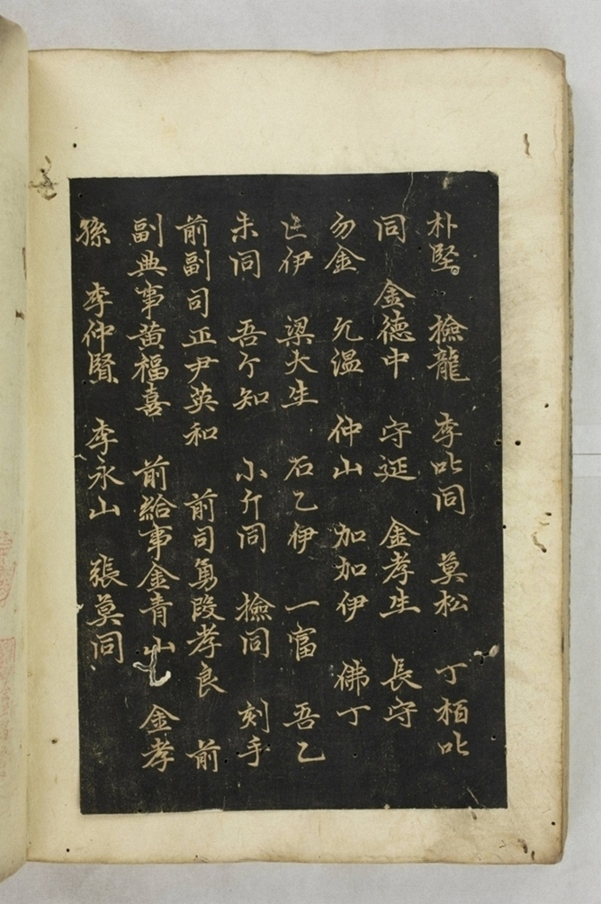 朴堅 檢龍 李叱同 莫松 丁栢叱
同 金德中 守延 金孝生 長守
勿金 凡溫 仲山 加加伊 佛丁
亡伊 梁大生 石乙伊 一富 吾乙
未同 吾个知 小斤同 檢同 刻手
前副司正尹英和 前司勇段孝良 前
副典事黃福喜 前給事金青山 金孝
孫 李仲賢 李永山 張莫同